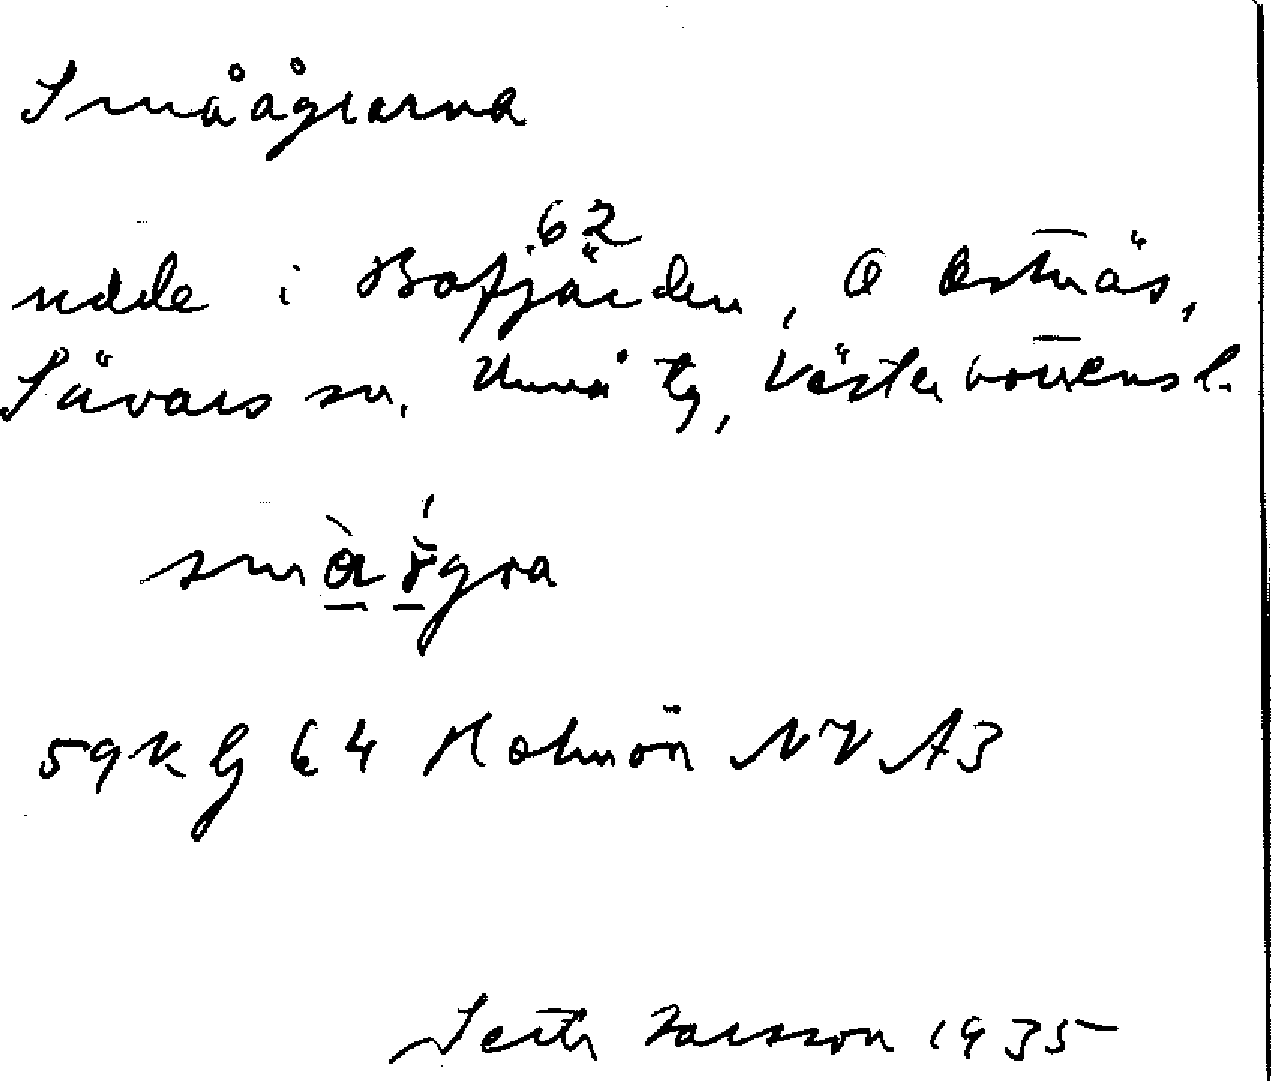 Smäågrarna
62
udde i Bofjärden, O Ostnäs,
Sävars sn, Umeå tg, Västerbottensl.
småɤgra
59 kg 64 Holmön NV A3
Seth Larsson 1935